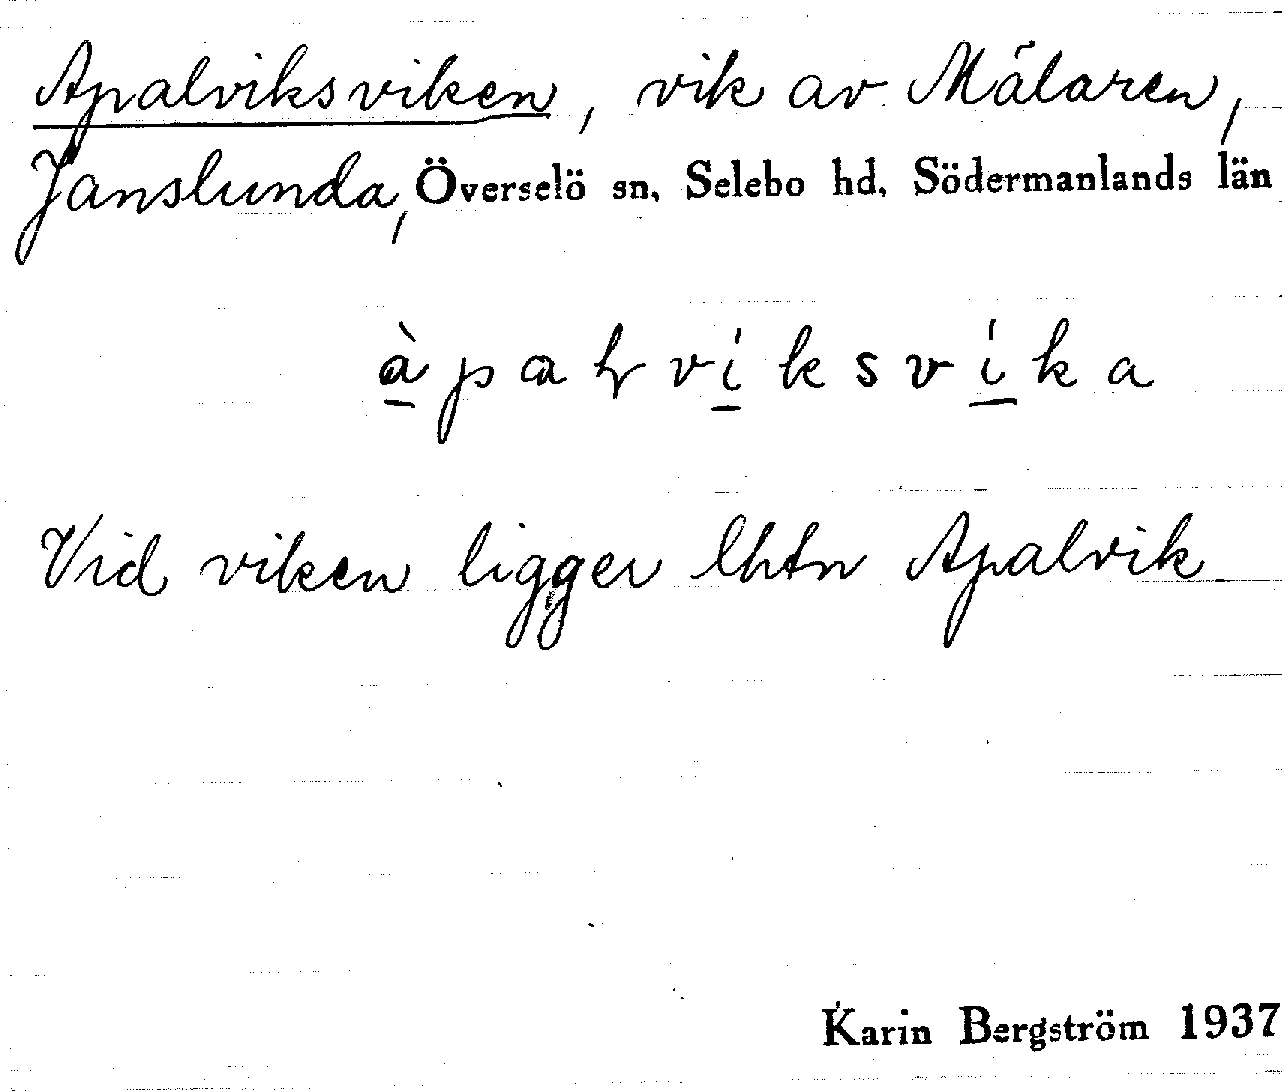 Apalviksviken, vik av Mälaren,
Janslunda, Överselö sn, Selebo hd, Södermanlands län
àpaḷvíksvíka
Vid viken ligger lhtn Apalvik
Karin Bergström 1937